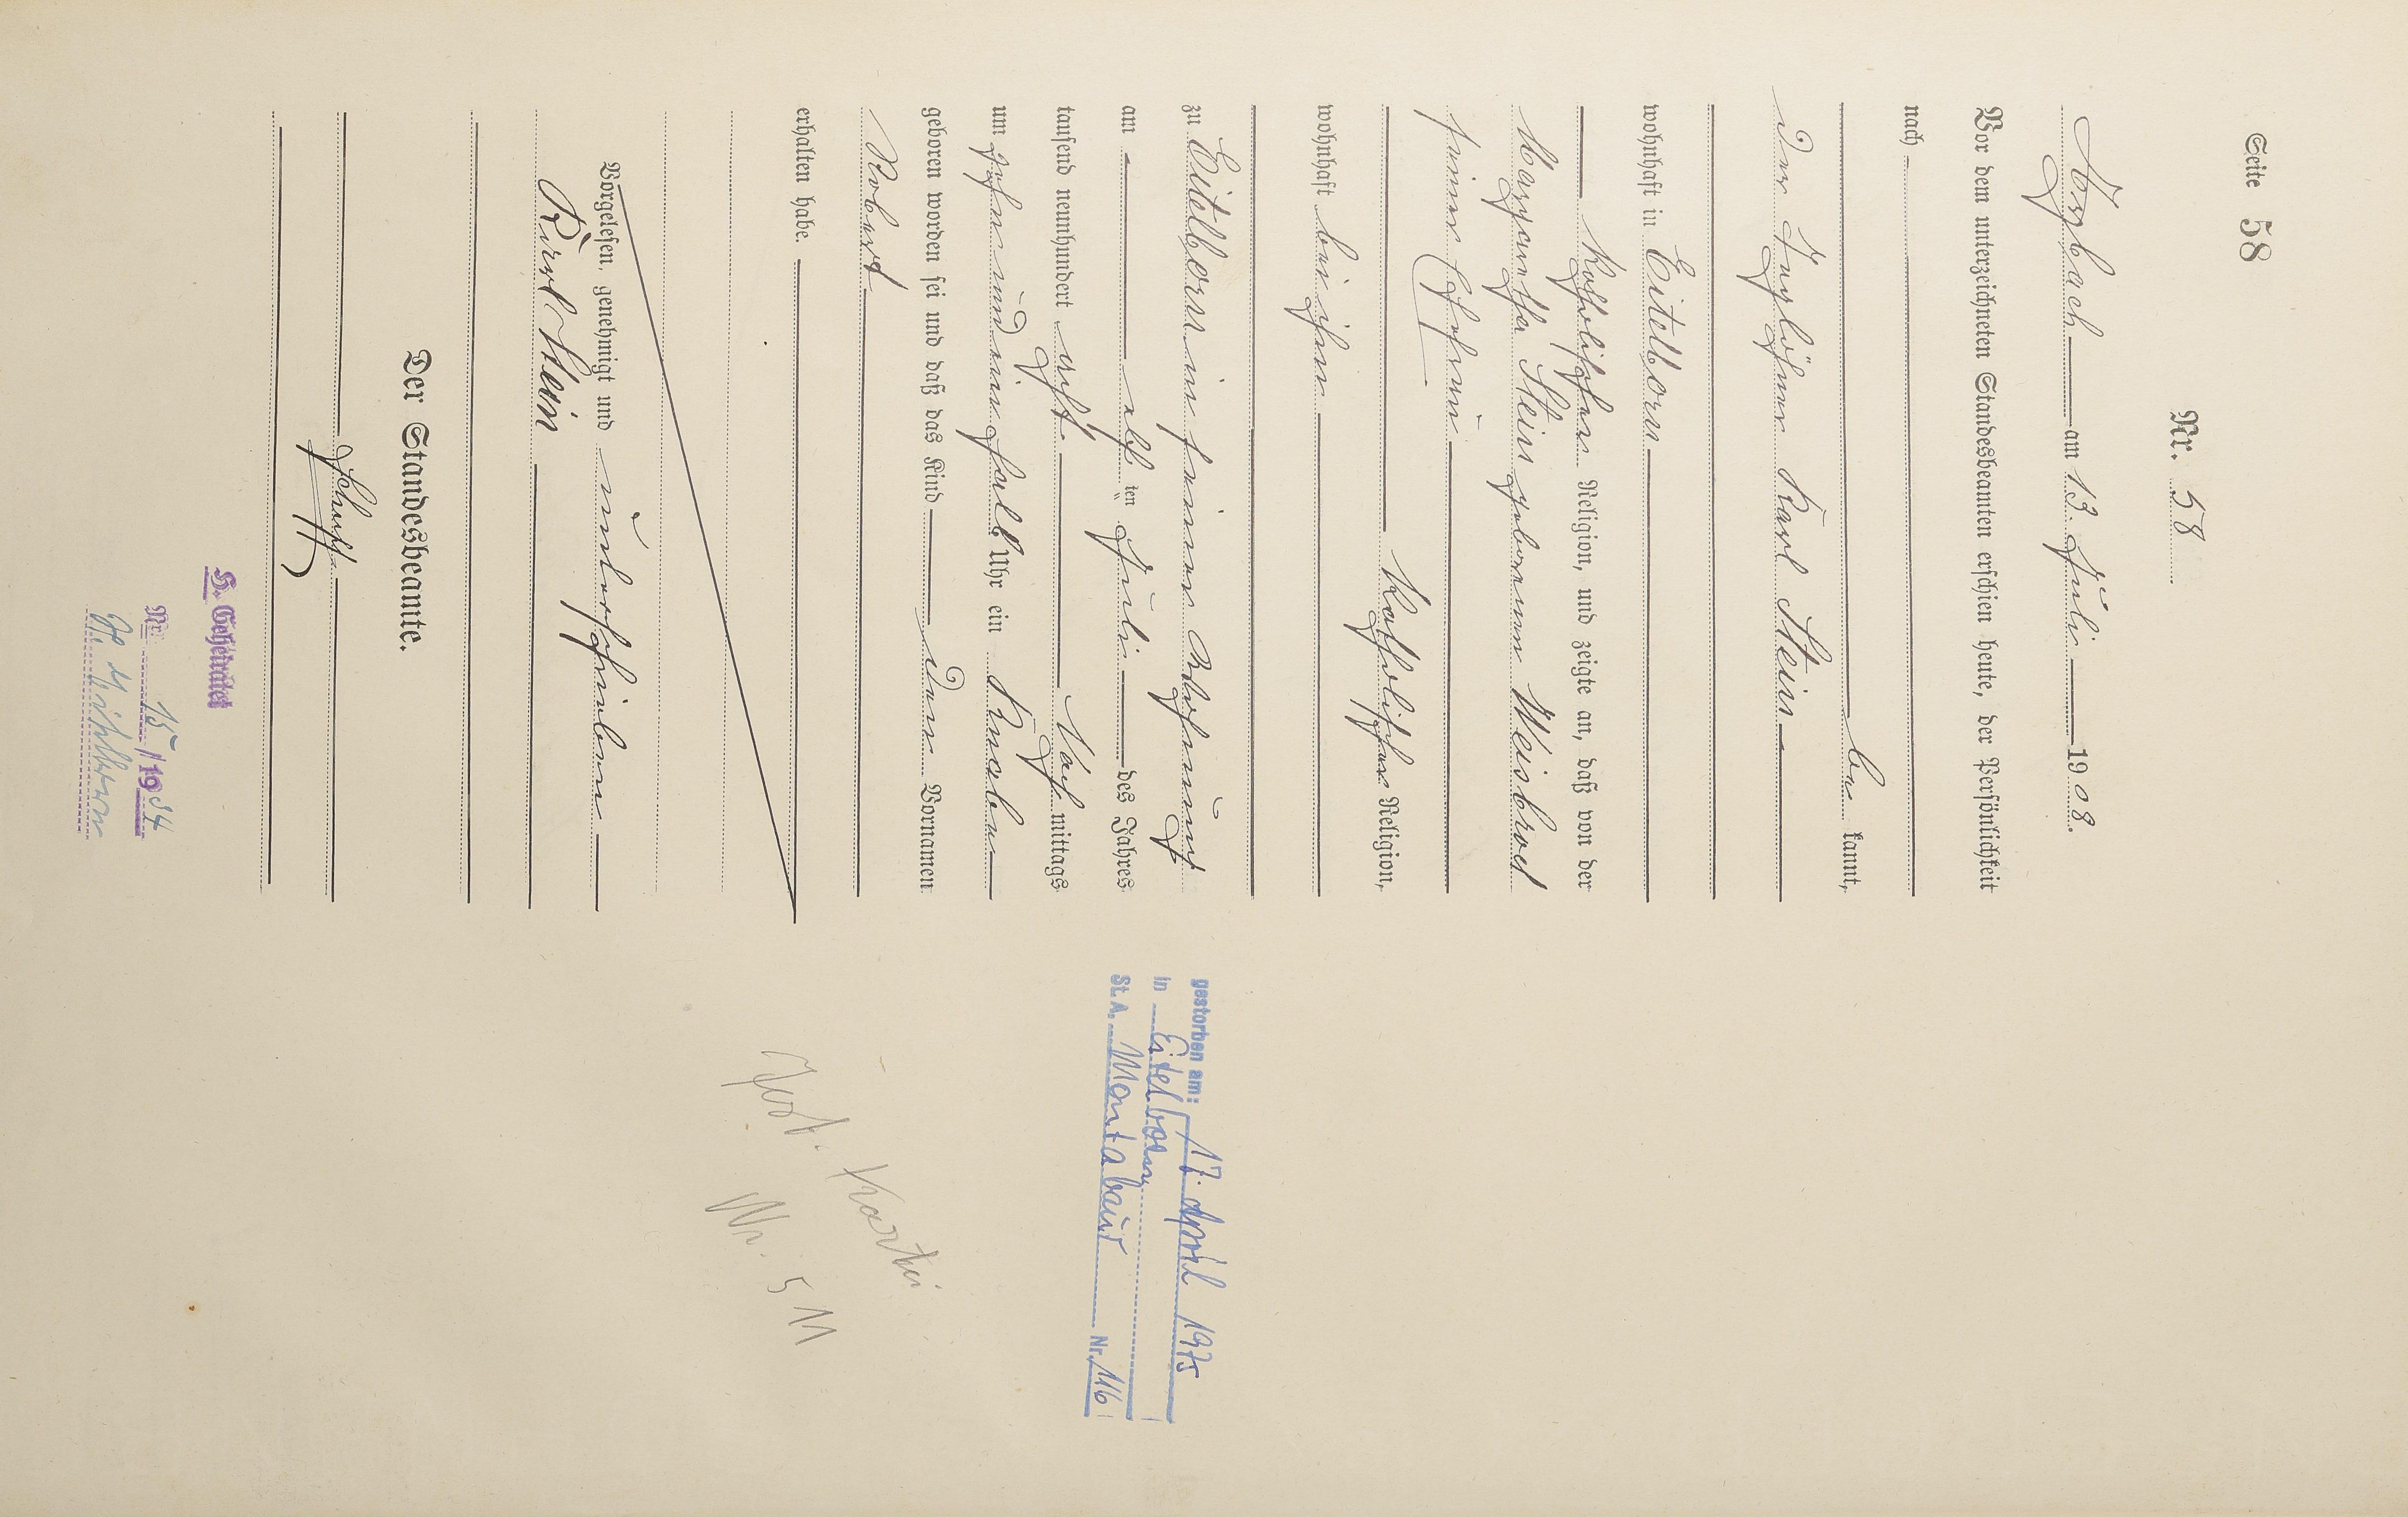 Seite 58
Nr. 58
Arzbach am 13. Juli 1908.
Vor dem unterzeichneten Standesbeamten erschien heute, der Persönlichkeit
nach
be kannt,
der Taglöhner Karl Stein
wohnhaft in Eitelborn
katholischer Religion, und zeigte an, daß von der
Margaretha Stein geborenen Weisbrod
seiner Ehefrau
katholischer Religion,
wohnhaft bei ihm
zu Eitelborn in seiner Wohnung
am elf ten Juli des Jahres
tausend neunhundert acht Nach mittags
um zehn und ein halb Uhr ein Knabe
geboren worden sei und daß das Kind den Vornamen
Robert
erhalten habe.
Vorgelesen, genehmigt und unterschrieben
Karl Stein
Der Standesbeamte.
H. Geheiratet
Nr. 15/1934
gestorben am: 17. April 1975
in Eitelborn
St. A. Montabaur Nr. 116
Nr. 511